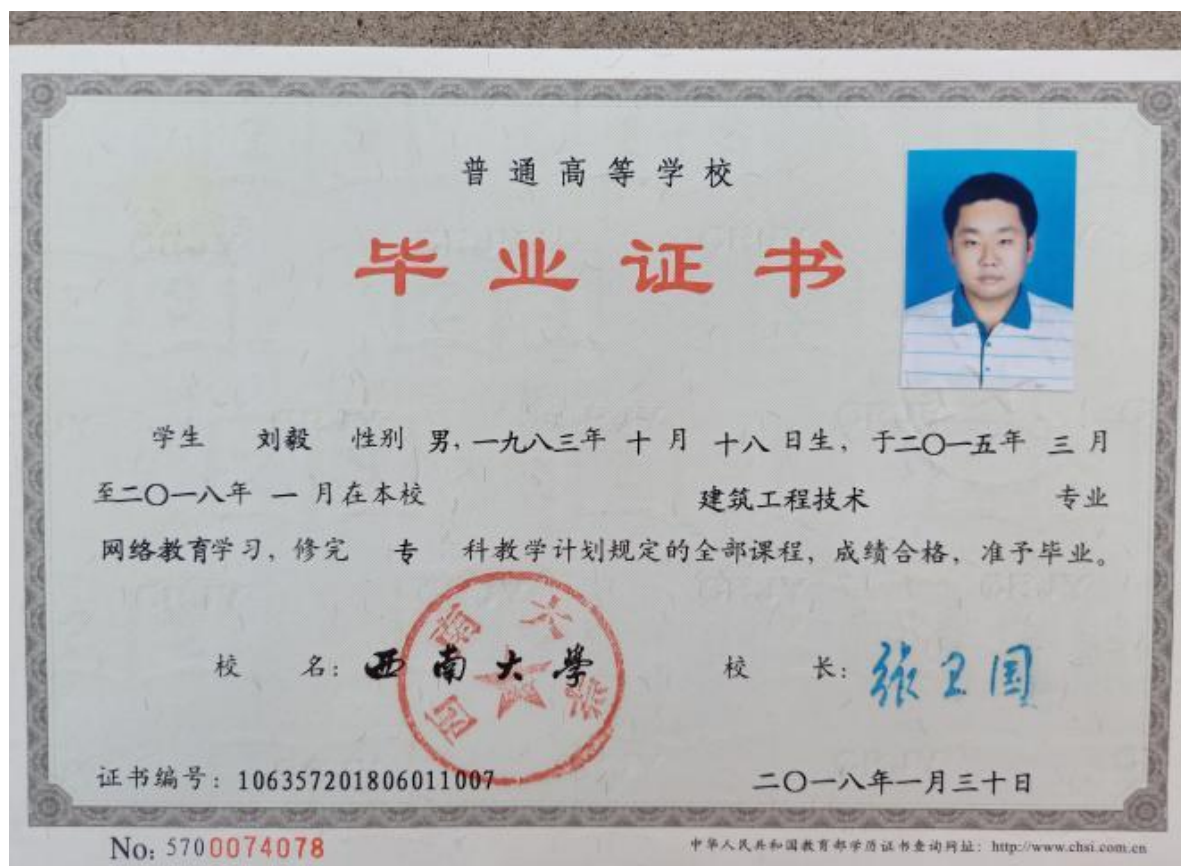 普通高等学校
毕业证书
学生 刘毅 性别 男，一九八三年 十 月 十八 日生，于二〇一五年 三 月
至二〇一八年 一 月在本校 建筑工程技术 专业
网络教育学习，修完 专 科教学计划规定的全部课程，成绩合格，准予毕业。
校 名：西南大學 校 长：张卫国
西南大学
证书编号：106357201806011007 二〇一八年一月三十日
No: 5700074078 中华人民共和国教育部学历证书查询网址：http://www.chsi.com.cn